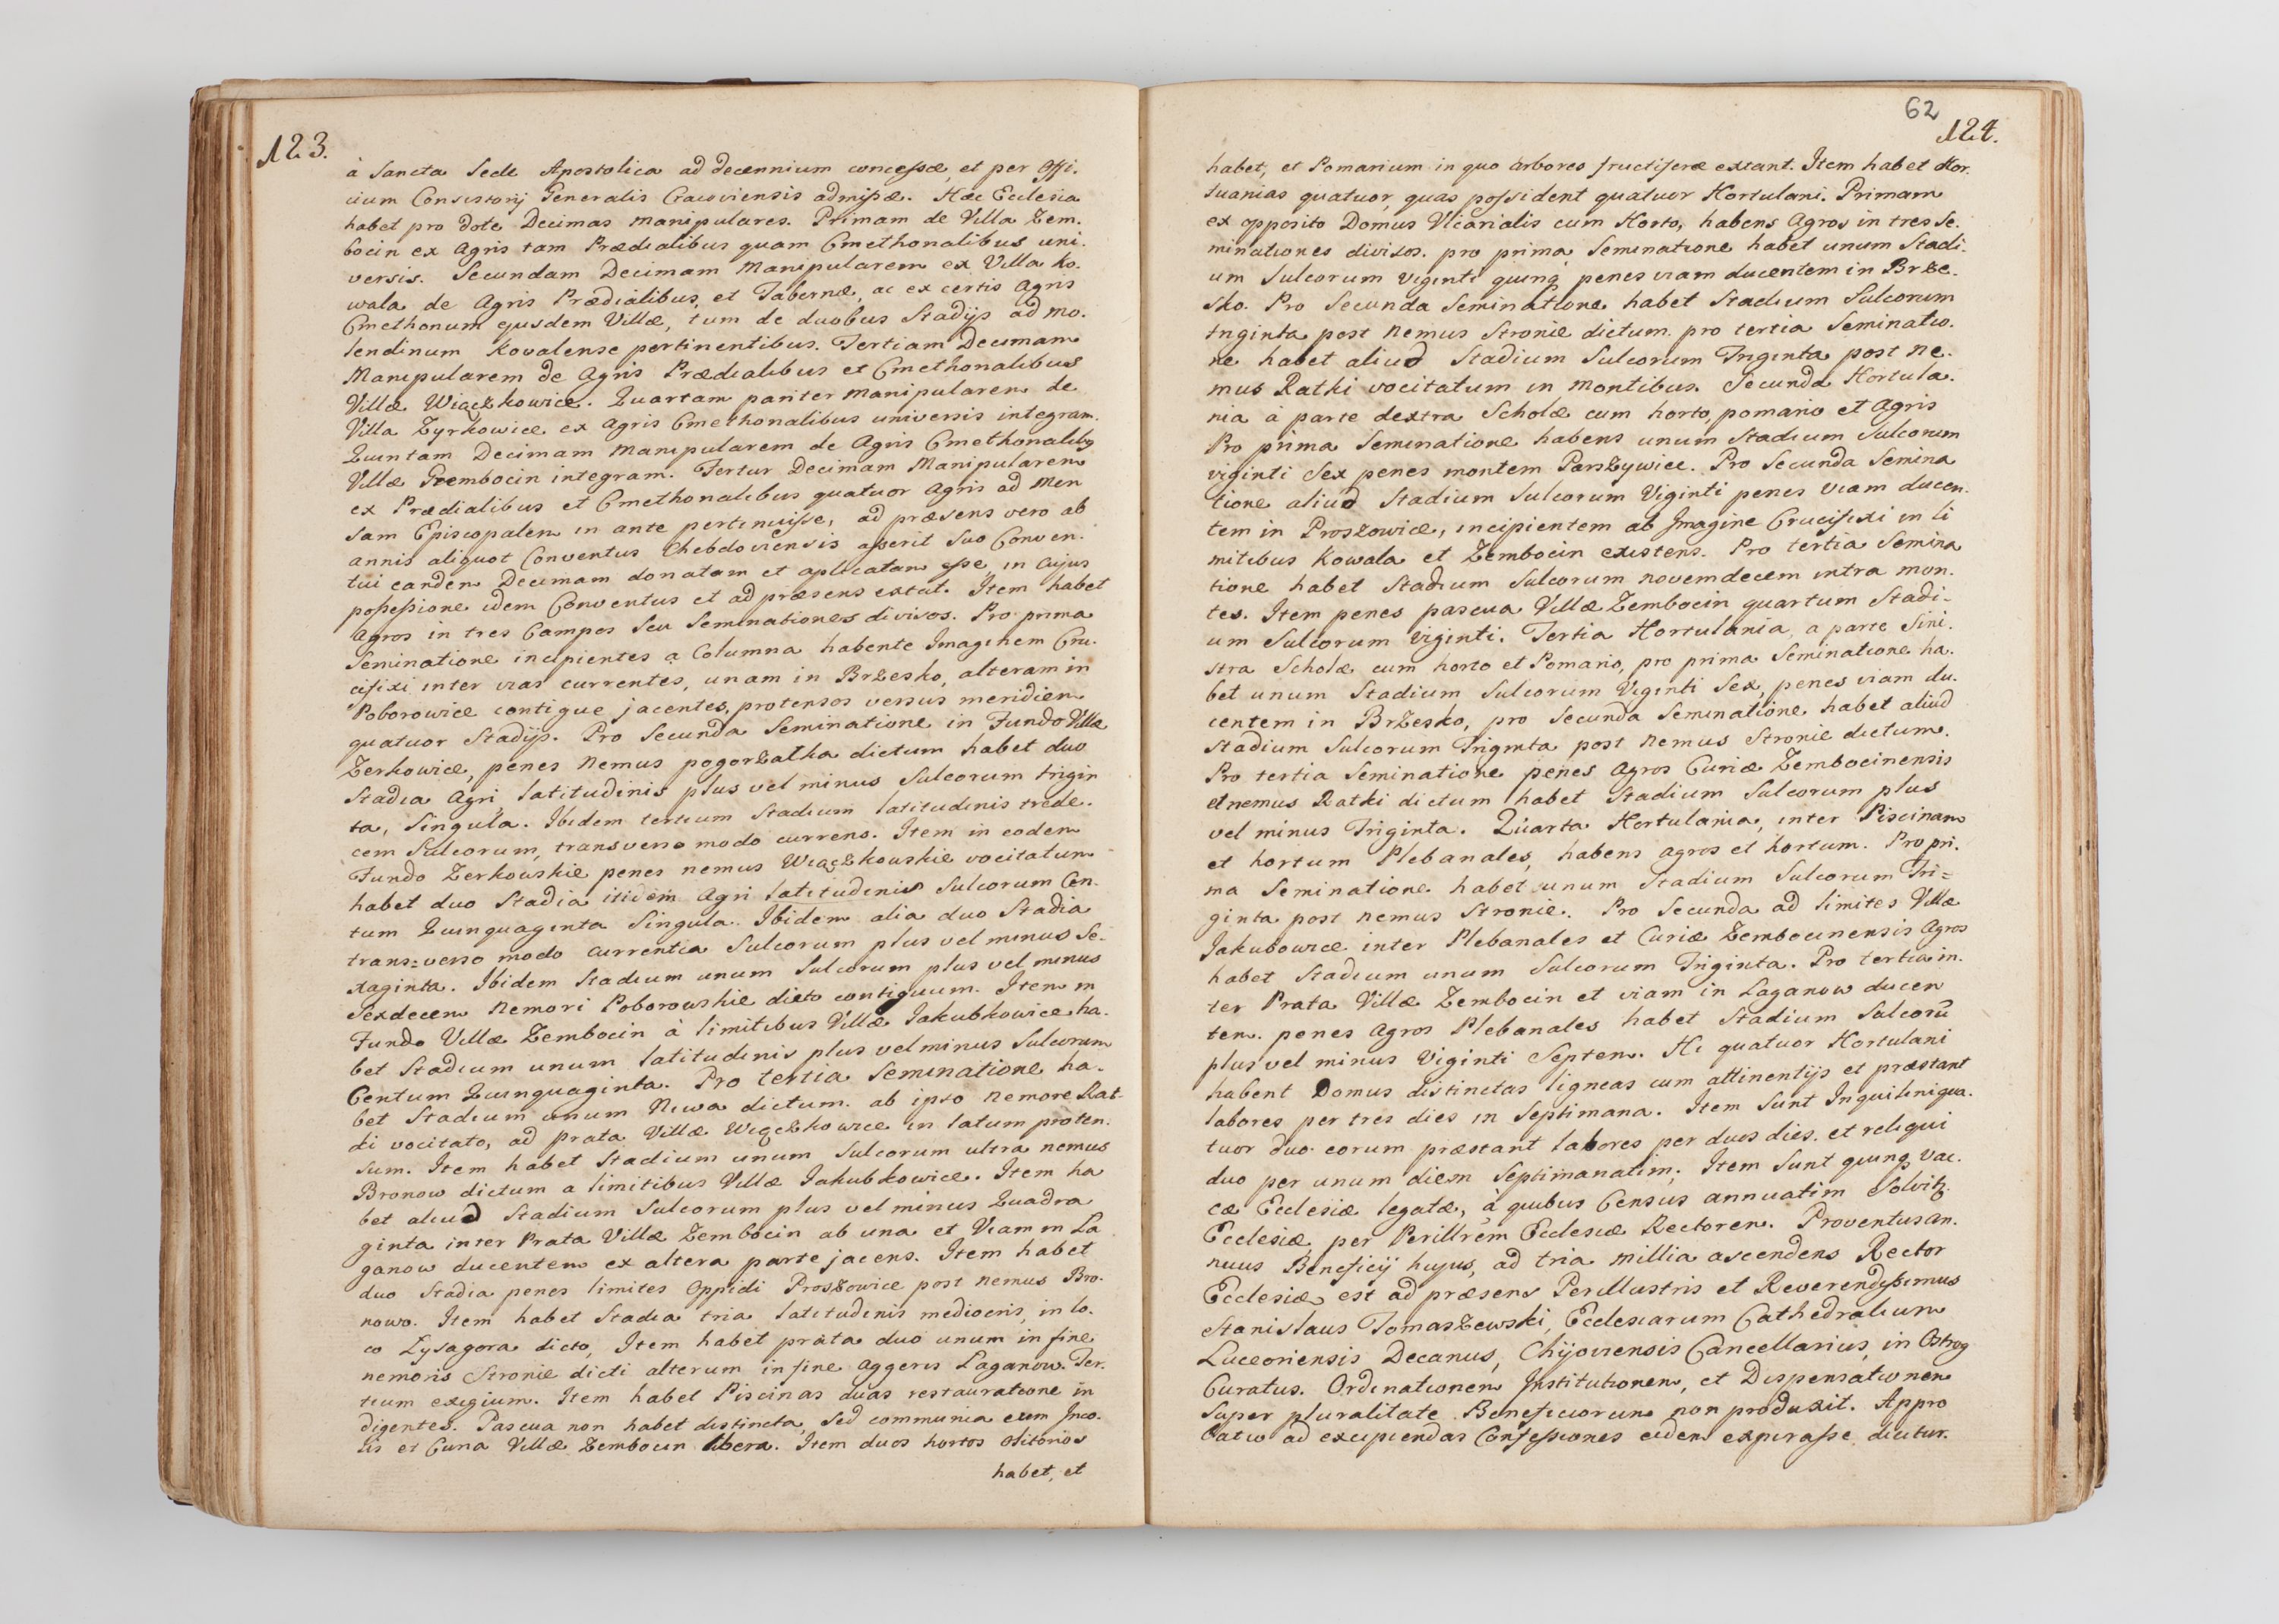 123.
à Sancta Sede Apostolica ad decennium concessæ, et per Offi-
cium Consistorij Generalis Cracoviensis admissæ. Hæc Ecclesia
habet pro dote Decimas manipulares. Primam de Villa Zem-
bocin ex Agris tam Prædialibus quam Cmethonalibus uni-
versis. Secundam Decimam Manipularem ex Villa Ko-
wala de Agris Prædialibus, et Tabernæ, ac ex certis Agris
Cmethonum ejusdem Villæ, tum de duobus Stadijs ad mo-
lendinum Kovalense pertinentibus. Tertiam Decimam
Manipularem de Agris Prædialibus et Cmethonalibus
Villæ Wiączkowice. Quartam pariter manipularem de
Villa Zyrkowice ex Agris Cmethonalibus universis integram.
Quintam Decimam Manipularem de Agris Cmethonalibq
Villæ Grembocin integram. Fertur Decimam Manipularem
ex Prædialibus et Cmethonalibus quatuor Agris ad Men
sam Episcopalem in ante pertinuisse, ad præsens vero ab
annis aliquot Conventus Chebdoviensis asserit Suo Conven-
tui eandem Decimam donatam et aplicatam esse, in cujus
possessione idem Conventus et ad præsens extat. Item habet
Agros in tres Campos seu Seminationes divisos. Pro prima
Seminatione incipientes a Columna habente Imaginem Cru-
cifixi inter vias currentes, unam in Brzesko, alteram in
Poborowice contigue jacentes, protensos versus meridiem
quatuor Stadijs. Pro Secunda Seminatione in Fundo Villæ
Zerkowice, penes Nemus pogorzalka dictum habet duo
Stadia Agri, latitudinis plus vel minus Sulcorum trigin
ta, Singula. Ibidem tertium Stadium latitudinis trede-
cem Sulcorum, transverso modo currens. Item in eodem
Fundo Zerkowskie penes nemus Wiączkowskie vocitatum
habet duo Stadia itidem Agri latitudinis Sulcorum Cen-
tum Quinquaginta Singula. Ibidem alia duo Stadia
trans=verso modo currentia Sulcorum plus vel minus Se-
xaginta. Ibidem Stadium unum Sulcorum plus vel minus
Sexdecem Nemori Poborowskie dicto contiguum. Item in
Fundo Villæ Zembocin à limitibus Villæ Jakubkowice ha-
bet Stadium unum latitudinis plus vel minus Sulcorum
Centum Quinquaginta. Pro tertia Seminatione ha-
bet Stadium unum Niwa dictum. ab ipso nemore Rat-
ki vocitato, ad prata Villæ Wiączkowice in latum proten-
sum. Item habet Stadium unum Sulcorum ultra nemus
Bronow dictum a limitibus Villæ Jakubkowice. Item ha
bet aliud Stadium Sulcorum plus vel minus Quadra
ginta inter Prata Villæ Zembocin ab una et Viam in La
ganow ducentem ex altera parte jacens. Item habet
duo Stadia penes limites Oppidi Proszowice post nemus Bro-
nowo. Item habet Stadia tria latitudinis mediocris, in lo-
co Lysagora dicto, Item habet prata duo unum in fine
nemoris Stronie dicti alterum in fine aggeris Laganow. Ter-
tium exigium. Item habet Piscinas duas restauratione in
digentes. Pascua non habet distincta, Sed communia cum Inco-
lis et Curia Villæ Zembocin libera. Item duos hortos olitorios
habet, et
62
124.
habet, et Pomarium in quo arbores fructiferæ extant. Item habet Hor-
tuanias quatuor, quas possident quatuor Hortulani. Primam
ex opposito Domus Vicarialis cum Horto, habens Agros in tres Se-
minationes divisos. pro prima Seminatione habet unum Stadi-
um Sulcorum viginti quinq penes viam ducentem in Brze-
sko. Pro Secunda Seminatione habet Stadium Sulcorum
triginta post nemus Stronie dictum. pro tertia Seminatio-
ne habet aliud Stadium Sulcorum Triginta post ne-
mus Ratki vocitatum in montibus. Secunda Hortula-
nia à parte dextra Scholæ cum horto, pomario et Agris
Pro prima Seminatione habens unum Stadium Sulcorum
viginti Sex penes montem Parszywiec. Pro Secunda Semina
tione aliud Stadium Sulcorum Viginti penes viam ducen-
tem in Proszowice, incipientem ab Imagine Crucifixi in li
mitibus Kowala et Zembocin existens. Pro tertia Semina
tione habet Stadium Sulcorum novemdecem intra mon-
tes. Item penes pascua Villæ Zembocin quartum Stadi-
um Sulcorum Viginti. Tertia Hortulania, a parte Sini-
stra Scholæ cum horto et Pomario, pro prima Seminatione ha-
bet unum Stadium Sulcorum Viginti Sex, penes viam du-
centem in Brzesko, pro Secunda Seminatione habet aliud
Stadium Sulcorum Triginta post nemus Stronie dictum.
Pro tertia Seminatione penes Agros Curiæ Zembocinensis
et nemus Ratki dictum habet Stadium Sulcorum plus
vel minus Triginta. Quarta Hortulania, inter Piscinam
et hortum Plebanales, habens agros et hortum. Pro pri-
ma Seminatione habet unum Stadium Sulcorum Tri=
ginta post nemus Stronie. Pro Secunda ad limites Villæ
Jakubowice inter Plebanales et Curiæ Zembocinensis Agros
habet Stadium unum Sulcorum Triginta. Pro tertia in-
ter Prata Villæ Zembocin et viam in Laganow ducen
tem. penes Agros Plebanales habet Stadium Sulcorū
plus vel minus Viginti Septem. Hi quatuor Hortulani
habent Domus distinctas ligneas cum attinentijs et præstant
labores per tres dies in Septimana. Item Sunt Inquilini qua-
tuor duo eorum præstant labores per duos dies. et reliqui
duo per unum diem Septimanatim; Item Sunt quinq Vac-
cæ Ecclesiæ legatæ, à quibus Census annuatim Solvitz
Ecclesiæ per Perillrem Ecclesiæ Rectorem. Proventus an-
nuus Beneficij hujus, ad tria millia ascendens Rector
Ecclesiæ est ad præsens Perillustris et Reverendissimus
Stanislaus Tomaszewski, Ecclesiarum Cathedralium
Luceoriensis Decanus, Chijoviensis Cancellarius, in Ostrog
Curatus. Ordinationem Institutionem, et Dispensationem
Super pluralitate Beneficiorum non produxit. Appro
batio ad excipiendas Confessiones eidem expirasse dicitur.